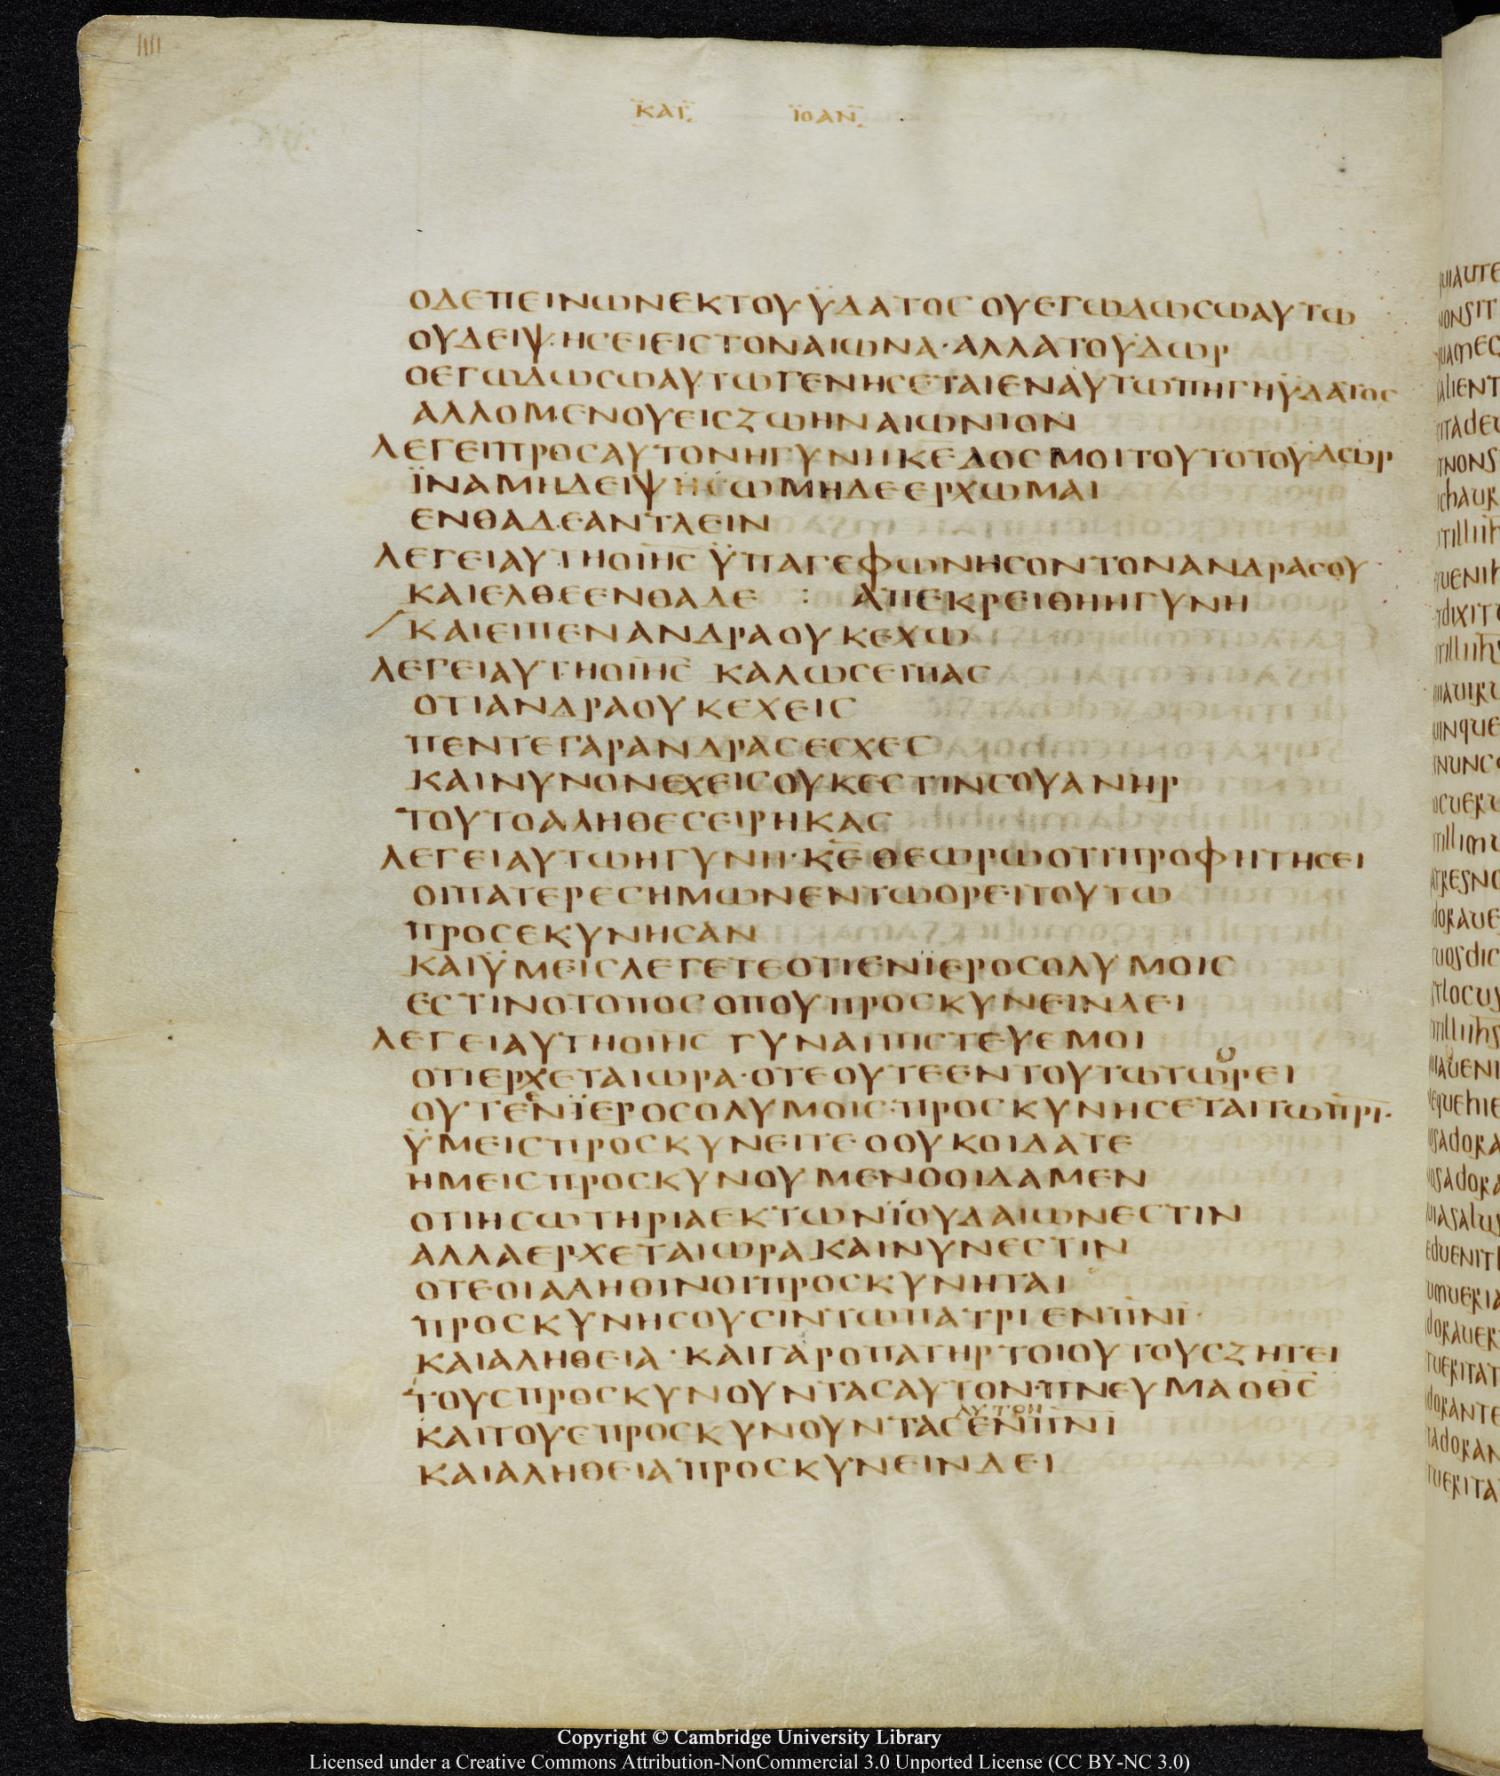 ΚΑΤ ΪΟΑΝ
ΟΔΕΠΕΙΝΩΝΕΚΤΟΥΫΔΑΤΟΣ ΟΥΕΓΩΔΩΣΩΑΥΤΩ
ΟΥΔΕΙΨΗΣΕΙΕΙΣΤΟΝΑΙΩΝΑ·ΑΛΛΑΤΟΫΔΩΡ
ΟΕΓΩΔΩΣΩΑΥΤΩΓΕΝΗΣΕΤΑΙΕΝΑΥΤΩΠΗΓΗΫΔΑΤΟΣ
ΑΛΛΟΜΕΝΟΥΕΙΣΖΩΗΝΑΙΩΝΙΟΝ
ΛΕΓΕΙΠΡΟΣΑΥΤΟΝΗΓΥΝΗΚΕΔΟΣΜΟΙΤΟΥΤΟΤΟΥΔΩΡ
ΪΝΑΜΗΔΕΙΨΗΣΩΜΗΔΕΕΡΧΩΜΑΙ
ΕΝΘΑΔΕΑΝΤΛΕΙΝ
ΛΕΓΕΙΑΥΤΗΟΙΗΣ ΫΠΑΓΕΦΩΝΗΣΟΝΤΟΝΑΝΔΡΑΣΟΥ
ΚΑΙΕΛΘΕΕΝΘΑΔΕ : ΑΠΕΚΡΕΙΘΗΗΓΥΝΗ
ΚΑΙΕΙΠΕΝΑΝΔΡΑΟΥΚΕΧΩ
ΛΕΓΕΙΑΥΤΗΟΙΗΣ ΚΑΛΩΣΕΙΠΑΣ
ΟΤΙΑΝΔΡΑΟΥΚΕΧΕΙΣ
ΠΕΝΤΕΓΑΡΑΝΔΡΑΣΕΣΧΕΣ
ΚΑΙΝΥΝΟΝΕΧΕΙΣΟΥΚΕΣΤΙΝΣΟΥΑΝΗΡ
ΤΟΥΤΟΑΛΗΘΕΣΕΙΡΗΚΑΣ
ΛΕΓΕΙΑΥΤΩΗΓΥΝΗ·ΚΕΘΕΩΡΩΟΤΙΠΡΟΦΗΤΗΣΕΙ
ΟΙΠΑΤΕΡΕΣΗΜΩΝΕΝΤΩΟΡΕΙΤΟΥΤΩ
ΠΡΟΣΕΚΥΝΗΣΑΝ
ΚΑΙΫΜΕΙΣΛΕΓΕΤΕΟΤΙΕΝΪΕΡΟΣΟΛΥΜΟΙΣ
ΕΣΤΙΝΟΤΟΠΟΣΟΠΟΥΠΡΟΣΚΥΝΕΙΝΔΕΙ
ΛΕΓΕΙΑΥΤΗΟΙΗΣ ΓΥΝΑΙΠΙΣΤΕΥΕΜΟΙ
ΟΤΙΕΡΧΕΤΑΙΩΡΑ·ΟΤΕΟΥΤΕΕΝΤΟΥΤΩΤΩΟΡΕΙ
ΟΥΤΕΕΝΪΕΡΟΣΟΛΥΜΟΙΣ·ΠΡΟΣΚΥΝΗΣΕΤΑΙΤΩΠΡΙ·
ΫΜΕΙΣΠΡΟΣΚΥΝΕΙΤΕΟΟΥΚΟΙΔΑΤΕ
ΗΜΕΙΣΠΡΟΣΚΥΝΟΥΜΕΝΟΟΙΔΑΜΕΝ
ΟΤΙΗΣΩΤΗΡΙΑΕΚΤΩΝΪΟΥΔΑΙΩΝΕΣΤΙΝ
ΑΛΛΑΕΡΧΕΤΑΙΩΡΑΚΑΙΝΥΝΕΣΤΙΝ
ΟΤΕΟΙΑΛΗΘΙΝΟΙΠΡΟΣΚΥΝΗΤΑΙ
ΠΡΟΣΚΥΝΗΣΟΥΣΙΝΤΩΠΑΤΡΙΕΝΠΝΙ·
ΚΑΙΑΛΗΘΕΙΑ·ΚΑΙΓΑΡΟΠΑΤΗΡΤΟΙΟΥΤΟΥΣΖΗΤΕΙ
ΤΟΥΣΠΡΟΣΚΥΝΟΥΝΤΑΣΑΥΤΟΝ·ΠΝΕΥΜΑΟΘΣ
ΑΥΤΟΝ
ΚΑΙΤΟΥΣΠΡΟΣΚΥΝΟΥΝΤΑΣΕΝΠΝΙ
ΚΑΙΑΛΗΘΕΙΑΠΡΟΣΚΥΝΕΙΝΔΕΙ
Copyright © Cambridge University Library
Licensed under a Creative Commons Attribution-NonCommercial 3.0 Unported License (CC BY-NC 3.0)